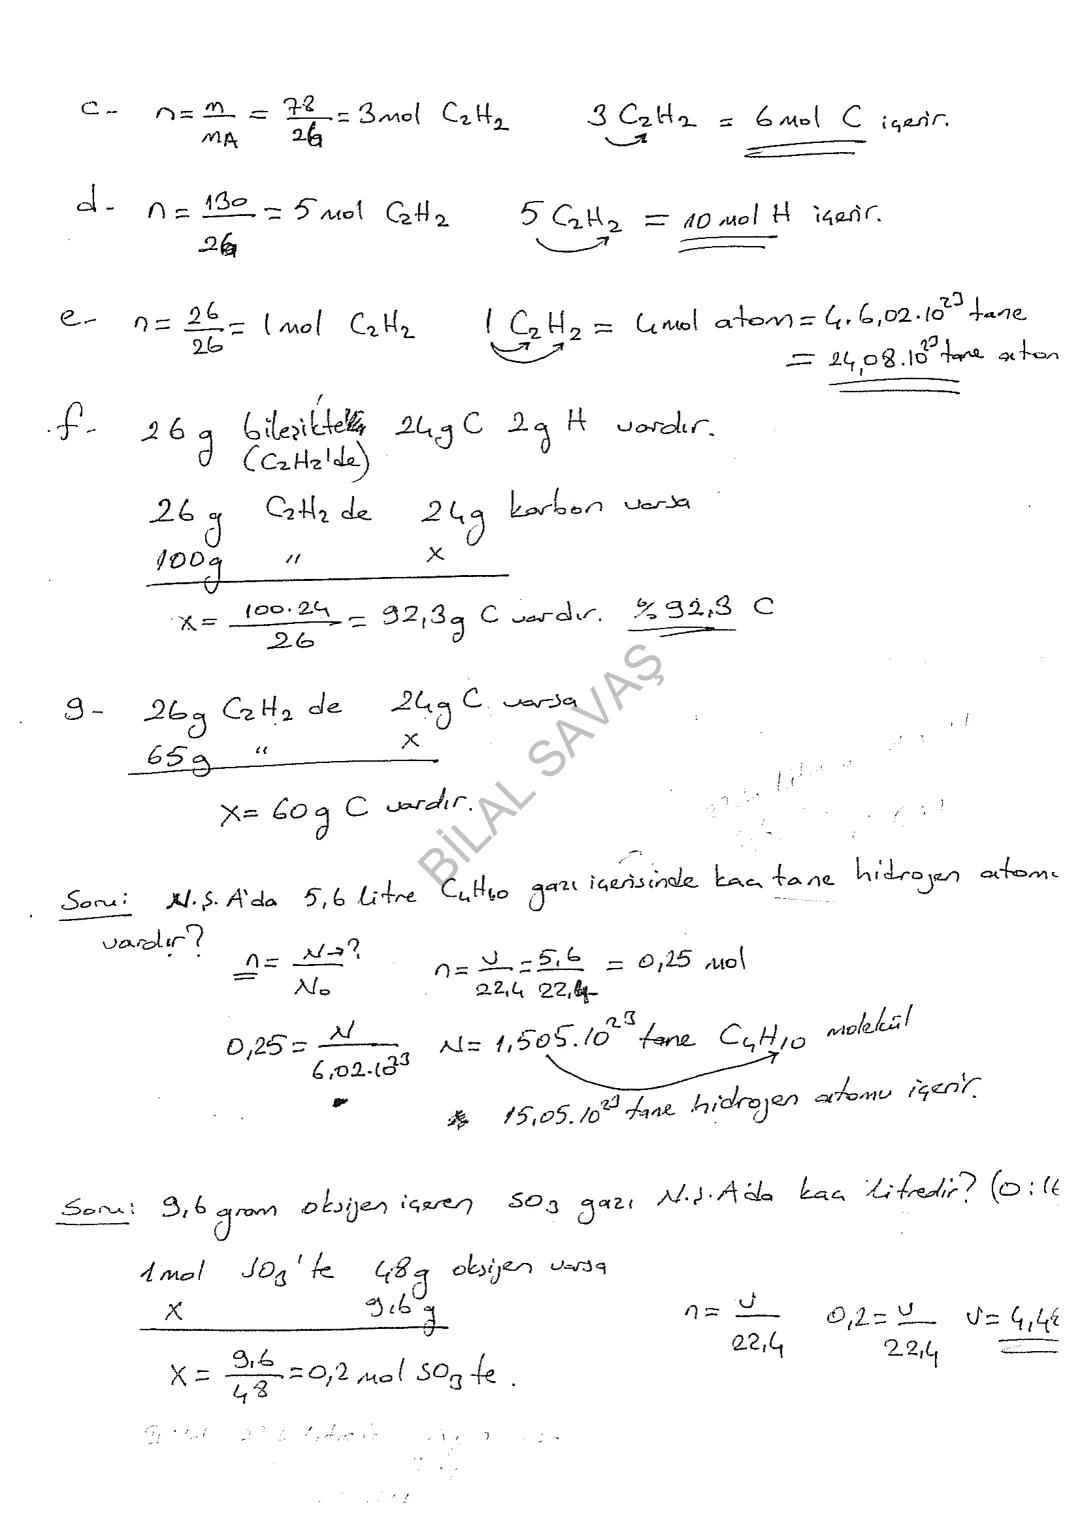 c- n = m/MA = 78/26 = 3 mol C₂H₂ 3 C₂H₂ = 6 mol C içerir.
d- n = 130/26 = 5 mol C₂H₂ 5 C₂H₂ = 10 mol H içerir.
e- n = 26/26 = 1 mol C₂H₂ 1 C₂H₂ = 4 mol atom = 4.6,02.10²³ tane
= 24,08.10²³ tane atom
f- 26 g bileşikteki 24g C 2g H vardır.
(C₂H₂'de)
26 g C₂H₂ de 24g karbon varsa
100g " x
x = 100.24/26 = 92,3g C vardır. %92,3 C
g- 26g C₂H₂ de 24g C varsa
65g " x
x = 60g C vardır.
BİLAL SAVAŞ
Soru: N.Ş.A'da 5,6 litre C₄H₁₀ gazı içerisinde kaç tane hidrojen atomu
vardır?
n = N→?/N₀ n = V/22,4 = 5,6/22,4 = 0,25 mol
0,25 = N/6,02.10²³ N = 1,505.10²³ tane C₄H₁₀ molekül
15,05.10²³ tane hidrojen atomu içerir.
Soru: 9,6 gram oksijen içeren SO₃ gazı N.Ş.A'da kaç litredir? (O:16
1 mol SO₃'te 48g oksijen varsa
x 9,6 g
x = 9,6/48 = 0,2 mol SO₃ te. n = V/22,4 0,2 = V/22,4 V = 4,48